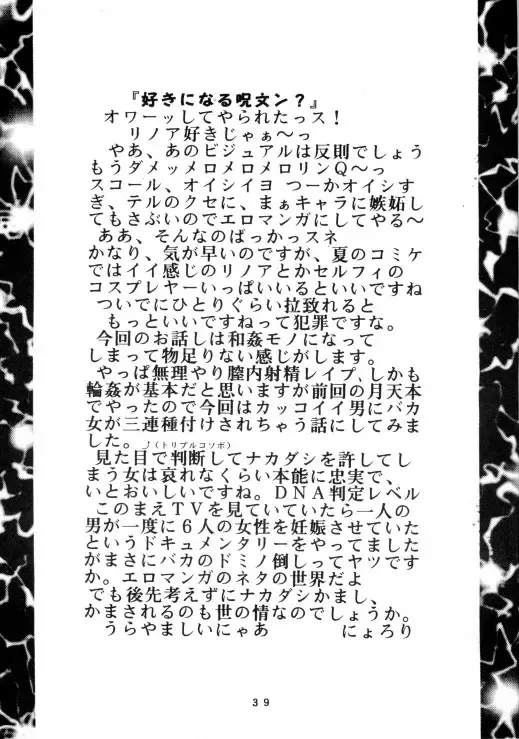 『好きになる呪文ン？』
オワーッしてやられたっス！
リノア好きじゃぁ～っ
やあ、あのビジュアルは反則でしょう
もうダメッメロメロメロリンＱ～っ
スコール、オイシイヨ つーかオイシす
ぎ、テルのクセに、まぁキャラに嫉妬し
てもさぶいのでエロマンガにしてやる～
ああ、そんなのばっかっスネ
かなり、気が早いのですが、夏のコミケ
ではイイ感じのリノアとかセルフィの
コスプレヤーいっぱいいるといいですね
ついでにひとりぐらい拉致れると
もっといいですねって犯罪ですな。
今回のお話しは和姦モノになって
しまって物足りない感じがします。
やっぱ無理やり膣内射精レイプ、しかも
輪姦が基本だと思いますが前回の月天本
でやったので今回はカッコイイ男にバカ
女が三連種付けされちゃう話にしてみま
した。⤴（トリプルコソボ）
見た目で判断してナカダシを許してし
まう女は哀れなくらい本能に忠実で、
いとおいしいですね。ＤＮＡ判定レベル
このまえＴＶを見ていていたら一人の
男が一度に６人の女性を妊娠させていた
というドキュメンタリーをやってました
がまさにバカのドミノ倒しってヤツです
か。エロマンガのネタの世界だよ
でも後先考えずにナカダシかまし、
かまされるのも世の情なのでしょうか。
うらやましいにゃあ　　　にょろり
39